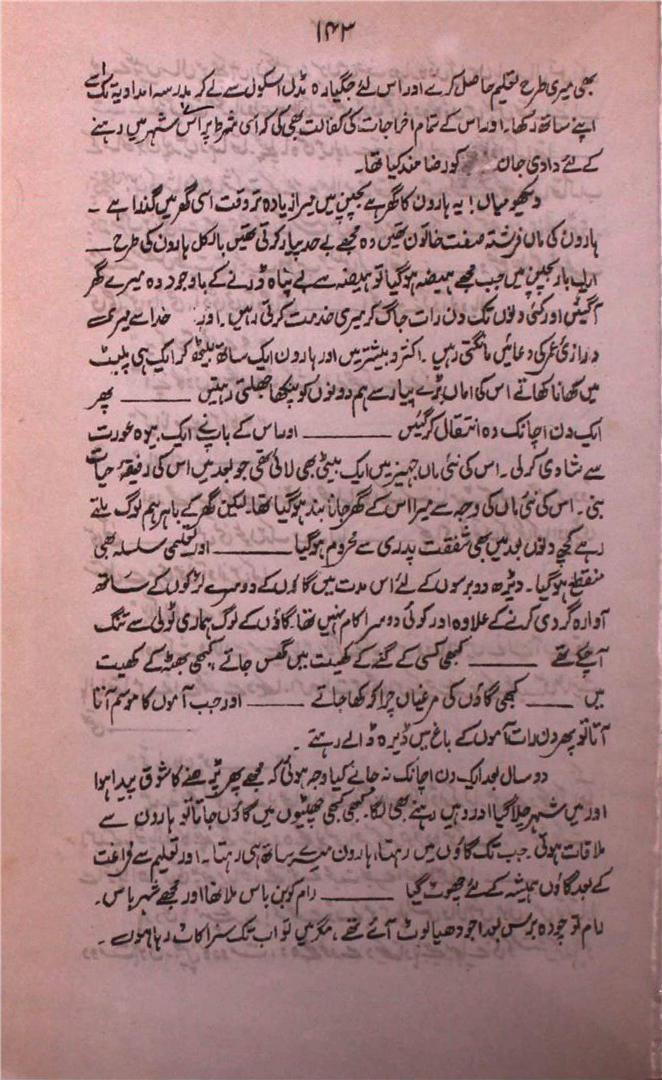 ۱۴۳
بھی میری طرح تعلیم حاصل کرے اور اس لئے جگیارہ مڈل اسکول سے لے کر مدرسہ امدادیہ تک اسے
اپنے ساتھ رکھا۔ اور اس کے تمام اخراجات کی کفالت بھی کی کہ اسی شرط پر اس شہر میں رہنے
کے لئے دادی جان کو رضامند کیا تھا۔
دیکھو میاں! یہ ہارون کا گھر ہے بچپن میں میرا زیادہ تر وقت اسی گھر میں گذرا ہے ۔
ہارون کی ماں فرشتہ صفت خاتون تھیں وہ مجھے بے حد پیار کرتی تھیں بالکل ہارون کی طرح ــــ
ایک بار بچپن میں جب مجھے ہیضہ ہوگیا تو ہیضہ سے بے پناہ ڈرنے کے باوجود وہ میرے گھر
آگئیں اور کئی دنوں تک دن رات جاگ کر میری خدمت کرتی رہیں ۔ اور خدا سے میری
درازئ عمر کی دعائیں مانگتی رہیں ۔ اکثر و بیشتر میں اور ہارون ایک ساتھ بیٹھ کر ایک ہی پلیٹ
میں کھانا کھاتے اس کی اماں بڑے پیار سے ہم دونوں کو پنکھا جھلتی رہتیں ــــــــ پھر
ایک دن اچانک وہ انتقال کر گئیں ــــــــ اور اس کے باپ نے ایک بیوہ عورت
سے شادی کر لی ۔ اس کی نئی ماں جہیز میں ایک بیٹی بھی لائی تھی جو بعد میں اس کی رفیقۂ حیات
بنی ۔ اس کی نئی ماں کی وجہ سے میرا اس کے گھر جانا بند ہوگیا تھا۔ لیکن گھر کے باہر ہم لوگ ملتے
رہے کچھ دنوں بعد میں بھی شفقت پدری سے محروم ہوگیا ــــــــ اور تعلیمی سلسلہ بھی
منقطع ہوگیا ۔ ڈیڑھ دو برسوں کے لئے اس مدت میں گاؤں کے دوسرے لڑکوں کے ساتھ
آوارہ گردی کرنے کے علاوہ اور کوئی دوسرا کام نہیں تھا۔ گاؤں کے لوگ ہماری ٹولی سے تنگ
آچکے تھے ــــــــ کبھی کسی کے گنے کے کھیت میں گھس جاتے، کبھی بھٹہ کے کھیت
میں ــــــــ کبھی گاؤں کی مرغیاں چرا کر کھا جاتے ــــــــ اور جب آموں کا موسم آتا
آتا تو پھر دن رات آموں کے باغ میں ڈیرہ ڈالے رہتے ۔
دو سال بعد ایک دن اچانک نہ جانے کیا وجہ ہوئی کہ مجھے پھر پڑھنے کا شوق پیدا ہوا
اور میں شہر چلا گیا اور وہیں رہنے بھی لگا۔ کبھی کبھی چھٹیوں میں گاؤں جاتا تو ہارون سے
ملاقات ہوتی ۔ جب تک گاؤں میں رہتا، ہارون میرے ساتھ ہی رہتا ۔ اور تعلیم سے فراغت
کے بعد گاؤں ہمیشہ کے لئے چھوٹ گیا ــــــــ رام کو بن باس ملا تھا اور مجھے شہر باس ۔
رام تو چودہ برس بعد اجودھیا لوٹ آئے تھے ، مگر میں تو اب تک سزا کاٹ رہا ہوں ۔